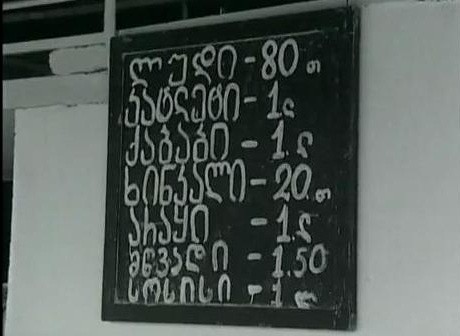 ლუდი - 80 თ
კატლეტი - 1ლ
ქაბაბი - 1.ლ
ხინკალი - 20.თ
არაყი - 1.ლ
მწვადი - 1.50
სოსისი - 1 ლ